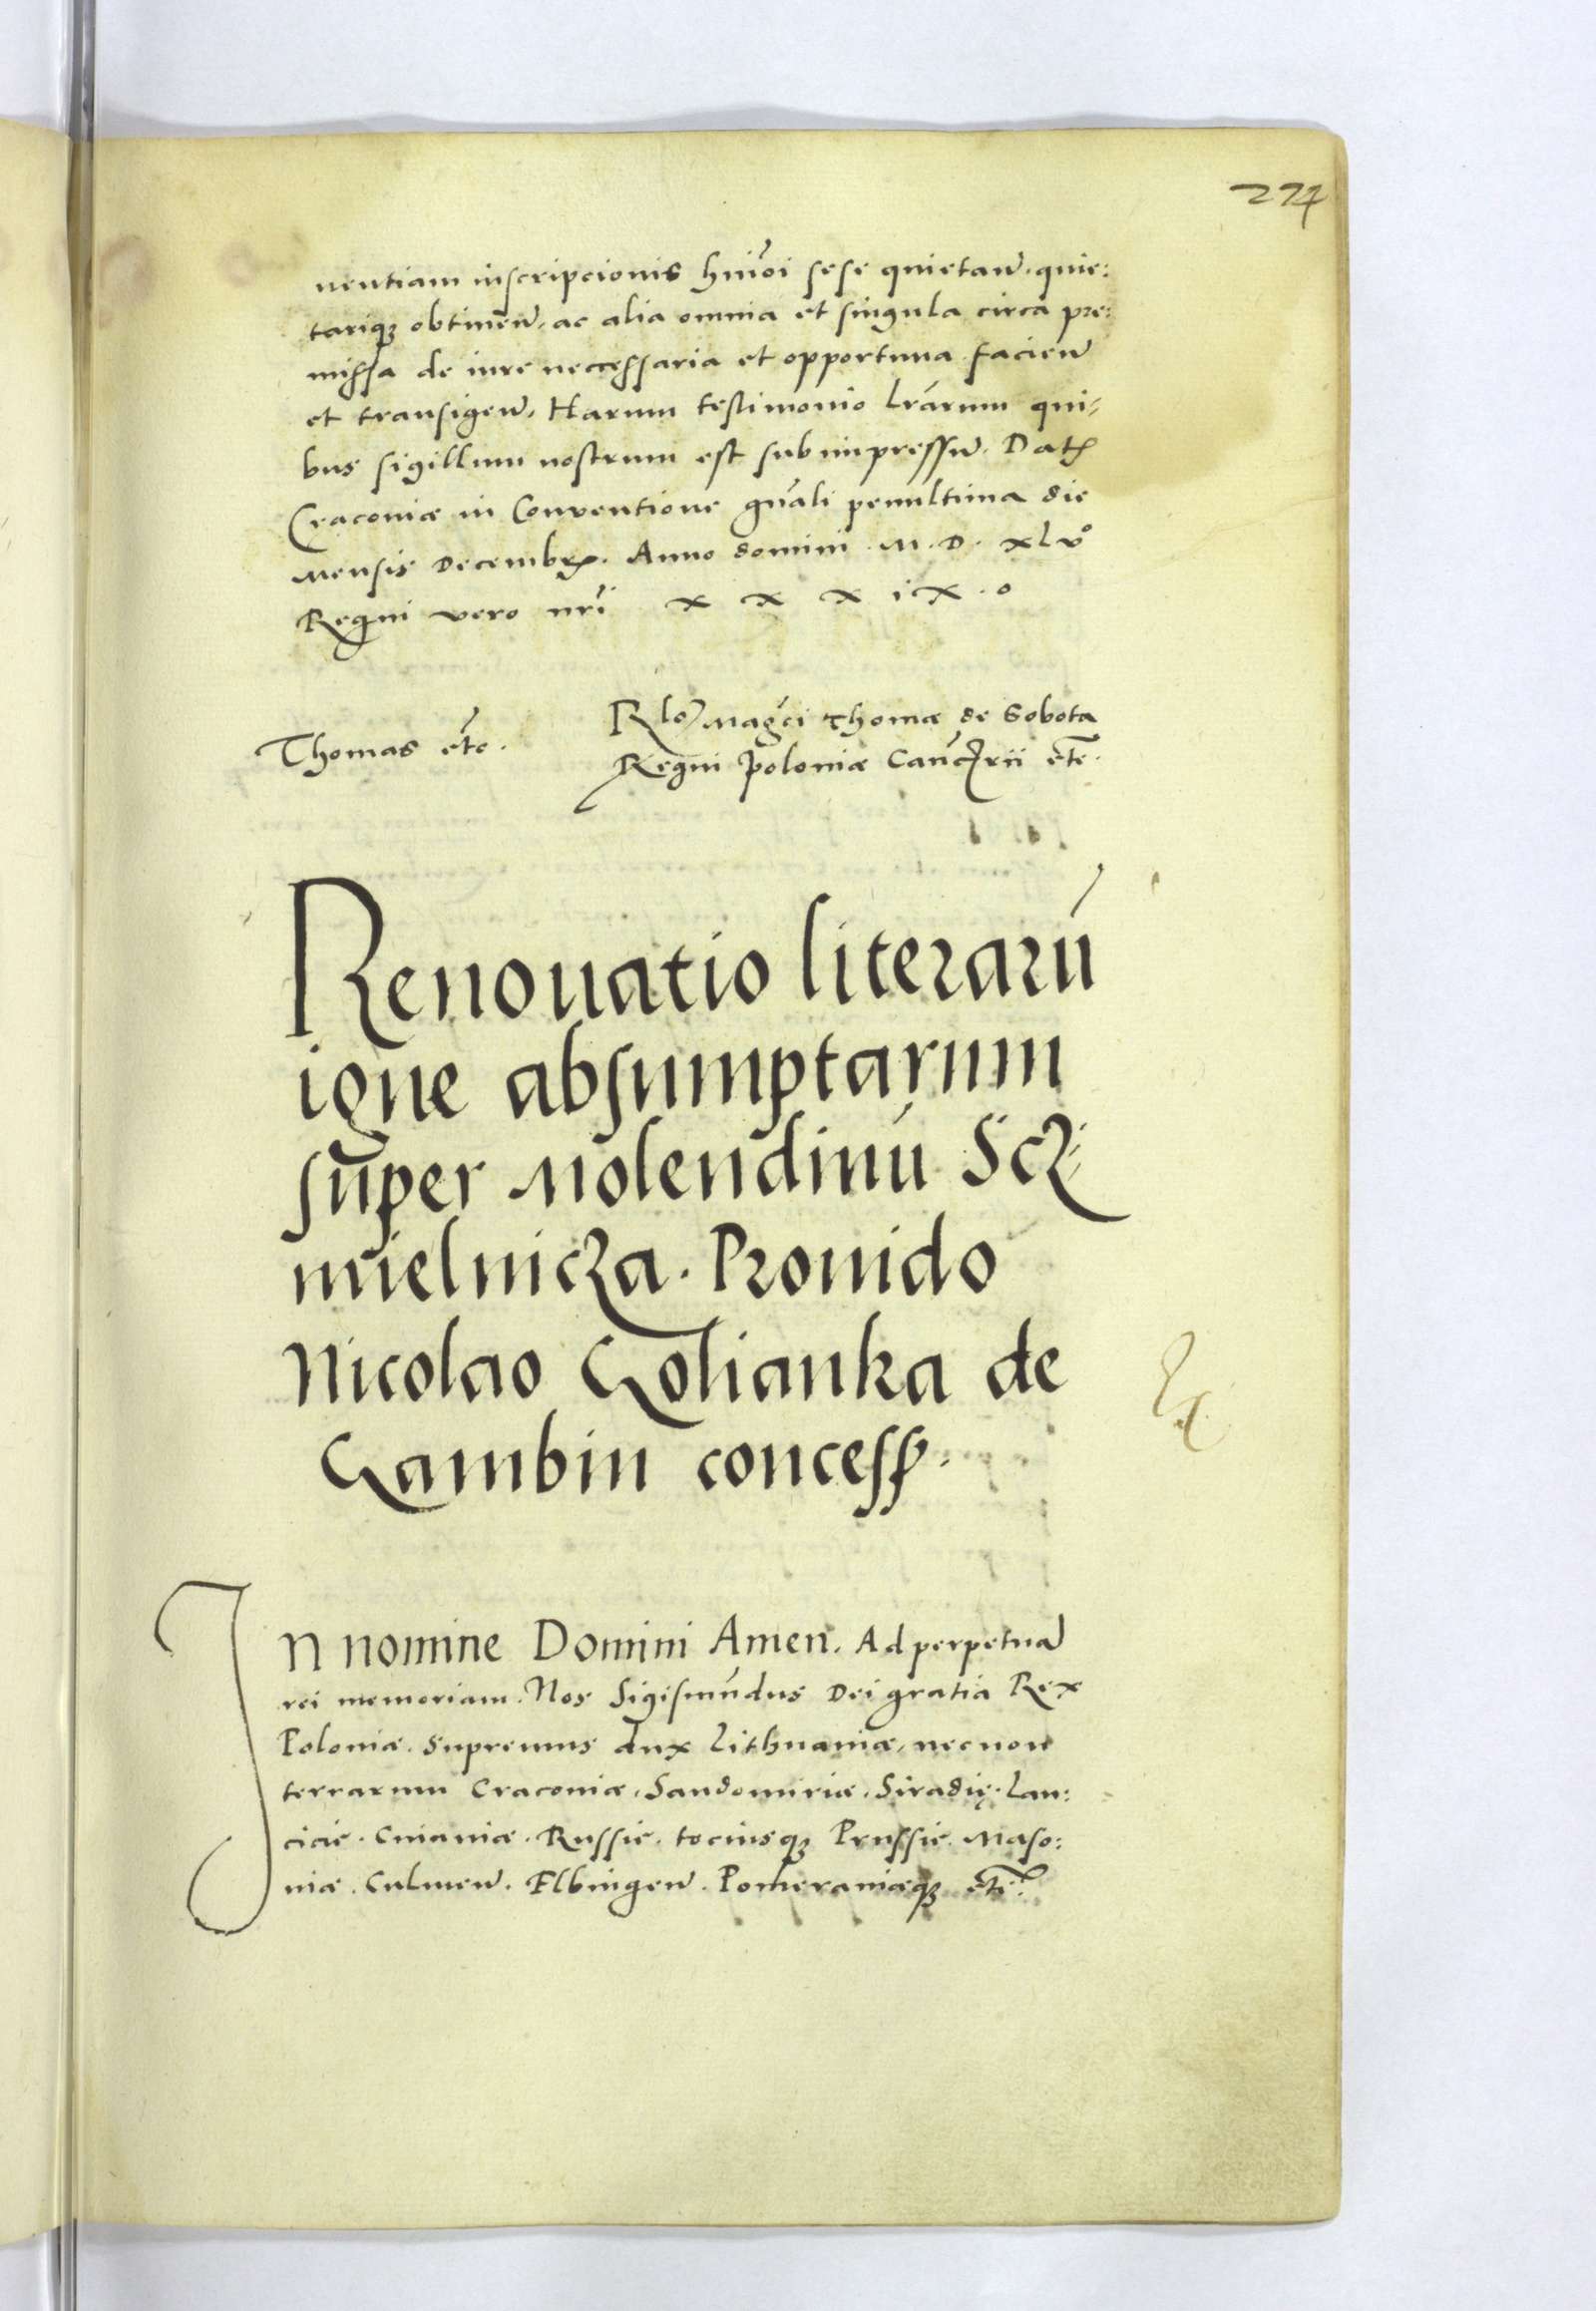 274
nentiam inscripcionis huiōi sese quietan̄. quie:
tariq; obtinen̄. ac alia omnia et singula circa pre:
missa de iure necessaria et opportuna facien̄
et transigen̄. Harum testimonio lr̄arum qui-
bus sigillum nostrum est subimpressū. Dat
Cracoviæ in Conventione gn̄ali penultima die
Mensis Decembr. Anno domini M. D. xlvº
Regni vero nr̄i x x x i x. o
Thomas etc̄.
Rlo Maḡci Thomæ de Sobota
Regni Poloniæ Can̄crii etc̄.
Renouatio literarū
igne absumptarum
super Molendinū Scz-
mielnicza. Prouido
Nicolao Golianka de
Gambin concess.
In nomine Domini Amen. Ad perpetuā
rei memoriam. Nos Sigismūdus Dei gratia Rex
Poloniæ. Supremus dux Lithuaniæ, necnon
terrarum Cracoviæ, Sandomiriæ, Siradię. Lan:
cicie. Cuiaviæ. Russie. tociusq; Prussie. Maso:
viæ. Culmen̄. Elbingen̄. Pomeraniæq; etc̄.